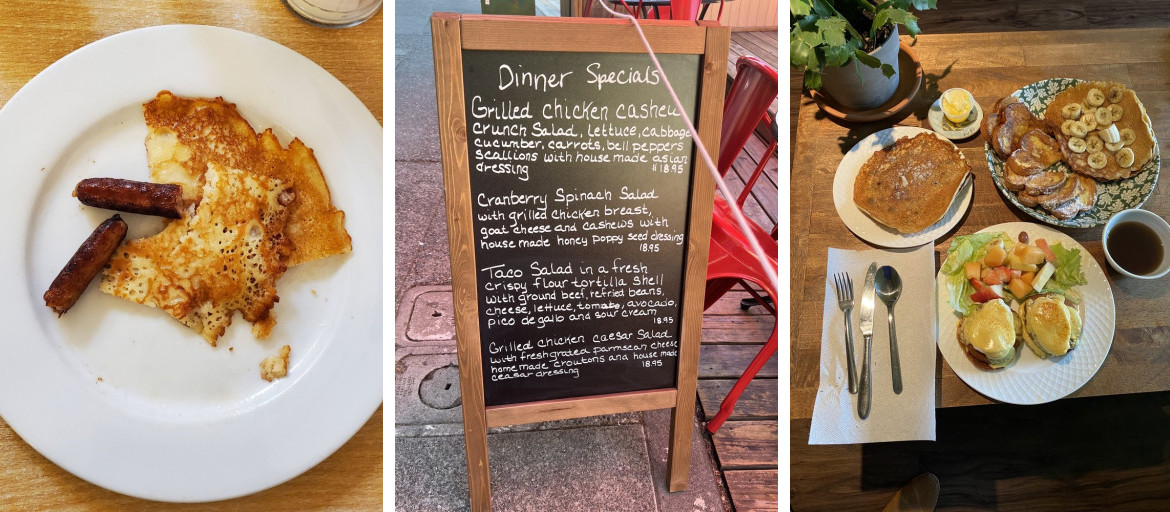 Dinner Specials
Grilled chicken cashew
crunch Salad, lettuce, cabbage
cucumber, carrots, bell peppers
scallions with house made asian
dressing $18.95
Cranberry Spinach Salad
with grilled chicken breast,
goat cheese and cashews with
house made honey poppy seed dressing
18.95
Taco Salad in a fresh
crispy flour tortilla Shell
with ground beef, refried beans,
cheese, lettuce, tomato, avocado,
pico de gallo and sour cream
18.95
Grilled chicken caesar Salad
with freshgrated parmscan cheese
home made croutons and house made
ceasar dressing 18.95